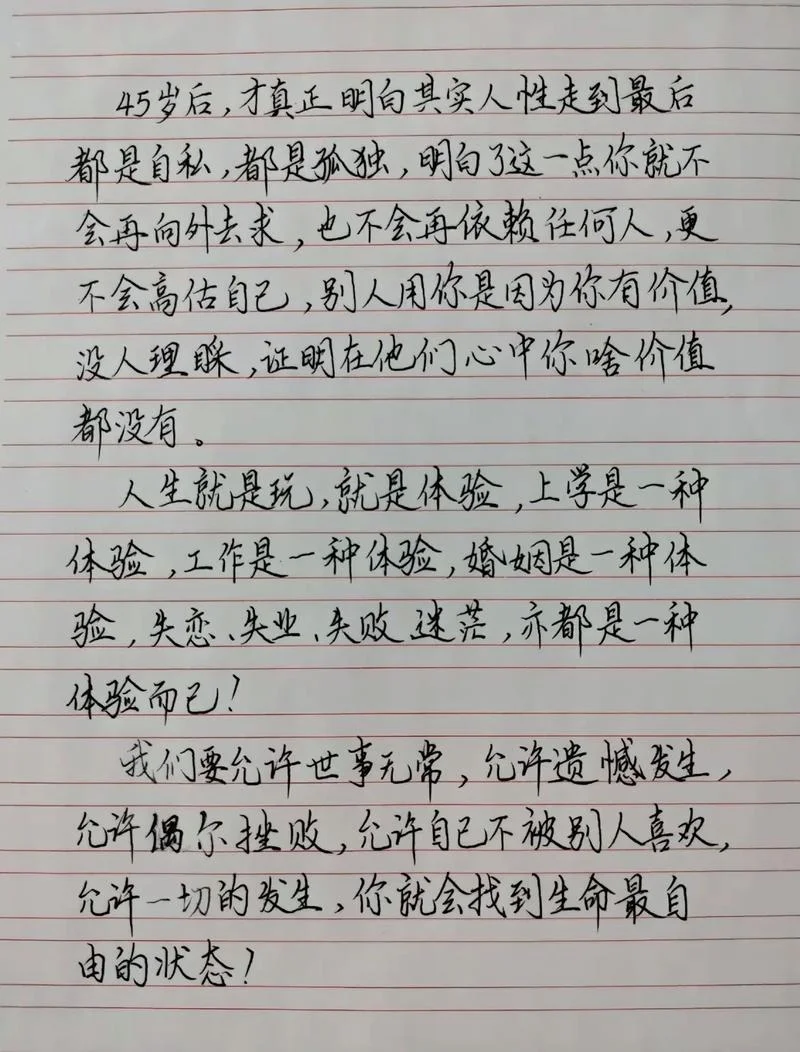 45岁后,才真正明白其实人性走到最后
都是自私,都是孤独,明白了这一点你就不
会再向外去求,也不会再依赖任何人,更
不会高估自己,别人用你是因为你有价值,
没人理睬,证明在他们心中你啥价值
都没有。
人生就是玩,就是体验,上学是一种
体验,工作是一种体验,婚姻是一种体
验,失恋、失业、失败、迷茫,亦都是一种
体验而已!
我们要允许世事无常,允许遗憾发生,
允许偶尔挫败,允许自己不被别人喜欢,
允许一切的发生,你就会找到生命最自
由的状态!